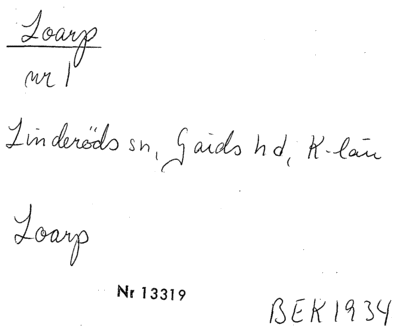 Loarp
nr 1
Linderöds sn, Gärds hd, K-län
Loarp
Nr 13319
BEK 1934